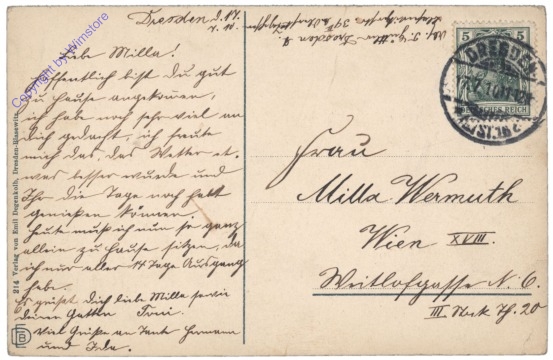 Dresden d. 17.
7. 10.
Liebe Milla!
Hoffentlich bist Du gut
zu Hause angekommen,
ich habe noch sehr viel an
Dich gedacht, ich freute
mich das, das Wetter et.
was besser wurde und
Ihr die Tage noch habt
genießen können.
Heute muß ich nun so ganz
allein zu Hause sitzen, da
ich nur aller 14 Tage Ausgang
habe.
Es grüßt Dich liebe Milla sowie
deinen Gatten Toni.
Viel Grüße an Tante Hermann
und Ida.
Dresden
5 5
DEUTSCHES REICH
DRESDEN
ALTST.
Frau
Milla Wermuth
Wien XVIII.
Weitlofgasse N. 6.
III Stock Th. 20
214 Verlag von Emil Degenkolb, Dresden-Blasewitz
Copyright by Wimstore